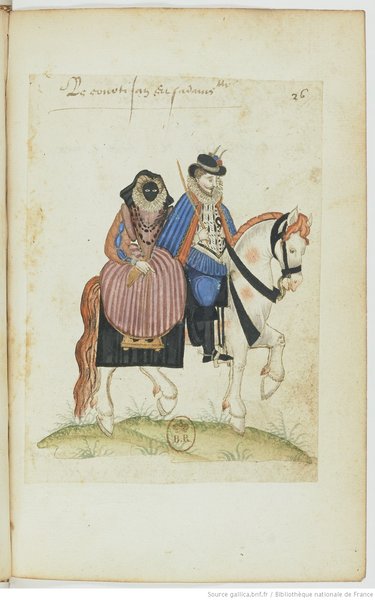 Le courtisan et sa damoiselle
26
B.R.
Source gallica.bnf.fr / Bibliothèque nationale de France